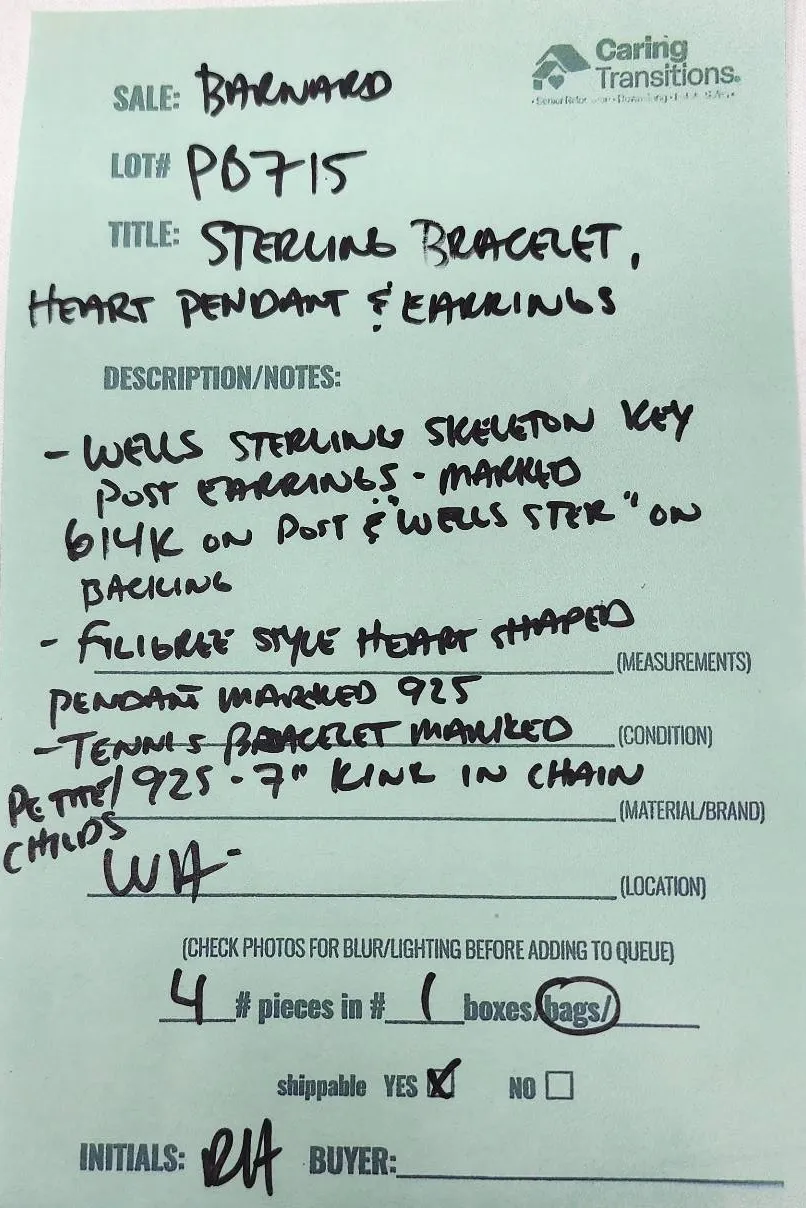 Caring
Transitions.
SALE: BARNARD
LOT# PB715
TITLE: STERLING BRACELET,
HEART PENDANT & EARRINGS
DESCRIPTION/NOTES:
- WELLS STERLING SKELETON KEY
POST EARRINGS - MARKED
614K ON POST & "WELLS STER" ON
BACKING
- FILIGREE STYLE HEART SHAPED
(MEASUREMENTS)
PENDANT MARKED 925
- TENNIS BRACELET MARKED
(CONDITION)
PETITE/ 925 - 7" KINK IN CHAIN
CHILDS
(MATERIAL/BRAND)
WA-
(LOCATION)
(CHECK PHOTOS FOR BLUR/LIGHTING BEFORE ADDING TO QUEUE)
4 # pieces in # 1 boxes/bags/
shippable YES X NO
INITIALS: RH BUYER: